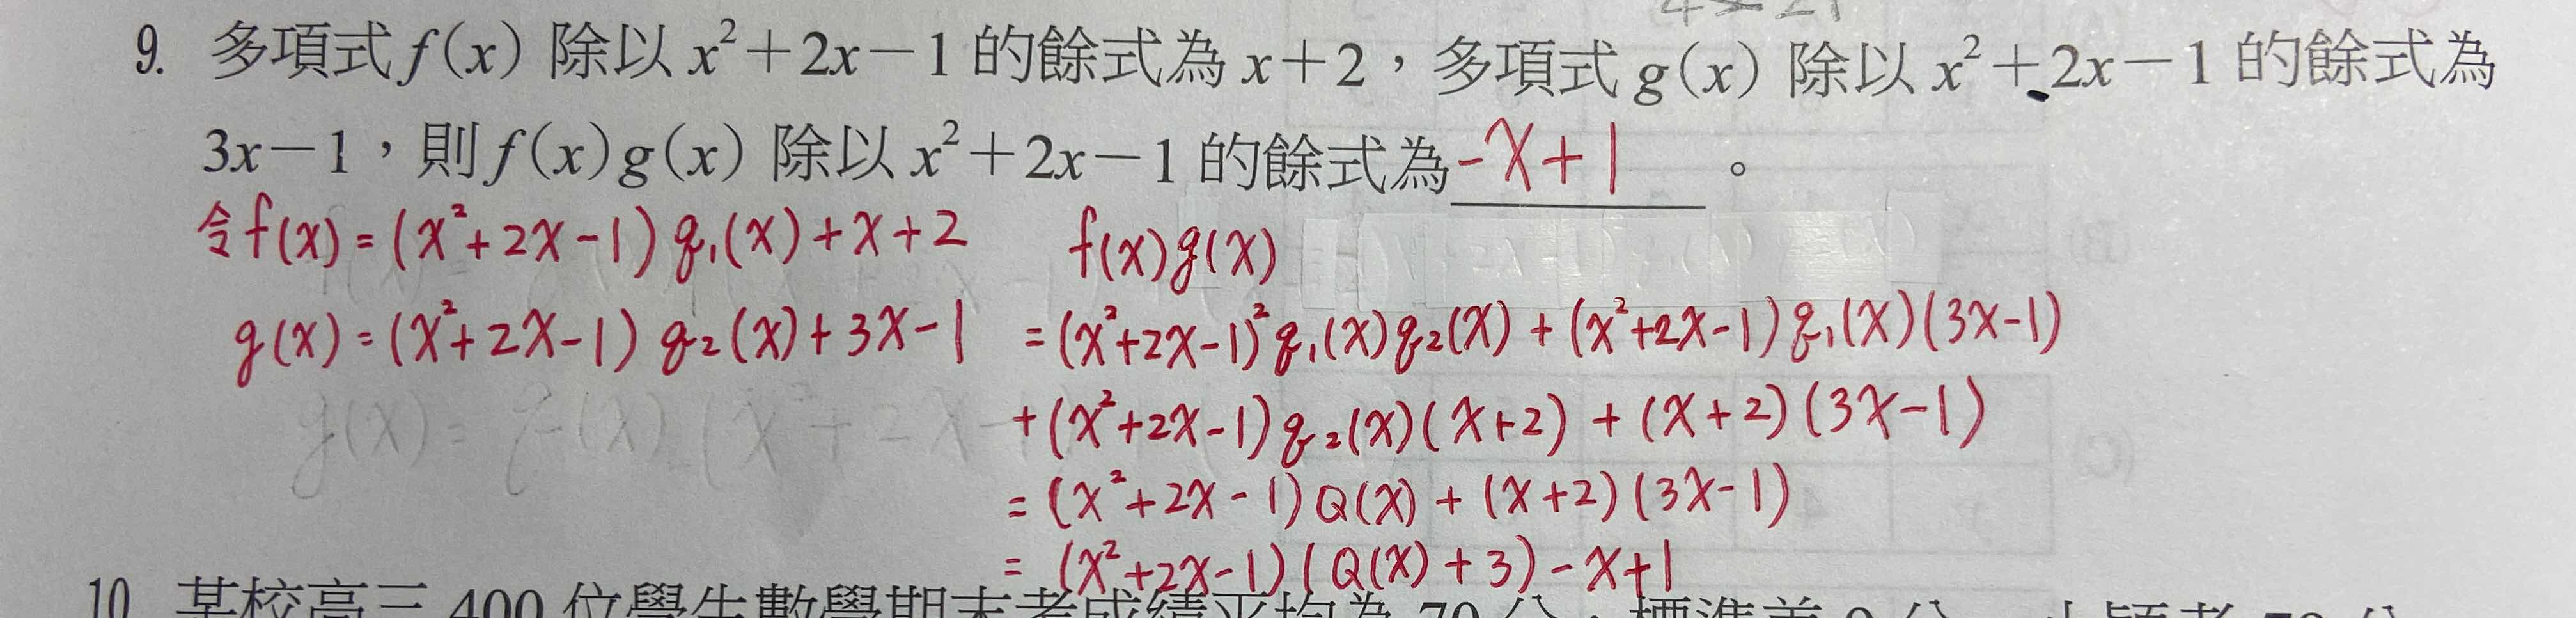 9. 多項式 f(x) 除以 x²+2x－1 的餘式為 x+2，多項式 g(x) 除以 x²+2x－1 的餘式為
3x－1，則 f(x)g(x) 除以 x²+2x－1 的餘式為 -x+1 。
令 f(x) = (x²+2x-1) q₁(x) + x+2
g(x) = (x²+2x-1) q₂(x) + 3x-1
f(x)g(x)
= (x²+2x-1)² q₁(x) q₂(x) + (x²+2x-1) q₁(x) (3x-1)
+ (x²+2x-1) q₂(x) (x+2) + (x+2) (3x-1)
= (x²+2x-1) Q(x) + (x+2) (3x-1)
= (x²+2x-1) (Q(x)+3) - x+1
10 某校高三 400 位學生數學期末考成績平均為 70 分，標準差